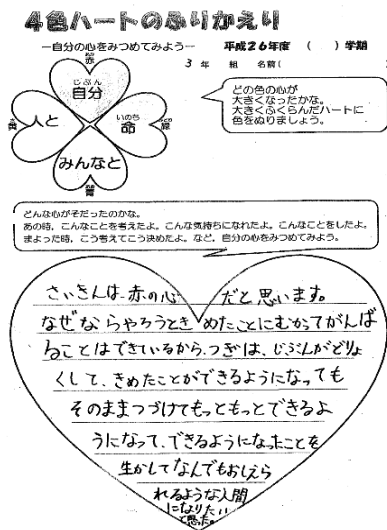 4色ハートのふりかえり
―自分の心をみつめてみよう― 平成26年度 ( )学期
3年 組 名前(
赤
じぶん
自分
黄
人と
いのち
命
緑
みんなと
青
どの色の心が
大きくなったかな。
大きくふくらんだハートに
色をぬりましょう。
どんな心がそだったのかな。
あの時、こんなことを考えたよ。こんな気持ちになれたよ。こんなことをしたよ。
まよった時、こう考えてこう決めたよ。など、自分の心をみつめてみよう。
さいきんは、赤の心 だと思います。
なぜならやろうときめたことにむかってがんば
ることはできているから、つぎは、じぶんがどりょ
くして、きめたことができるようになっても
そのままつづけてもっともっとできるよ
うになって、できるようになったことを
生かしてなんでもおしえら
れるような人間
になりたい
と思った。